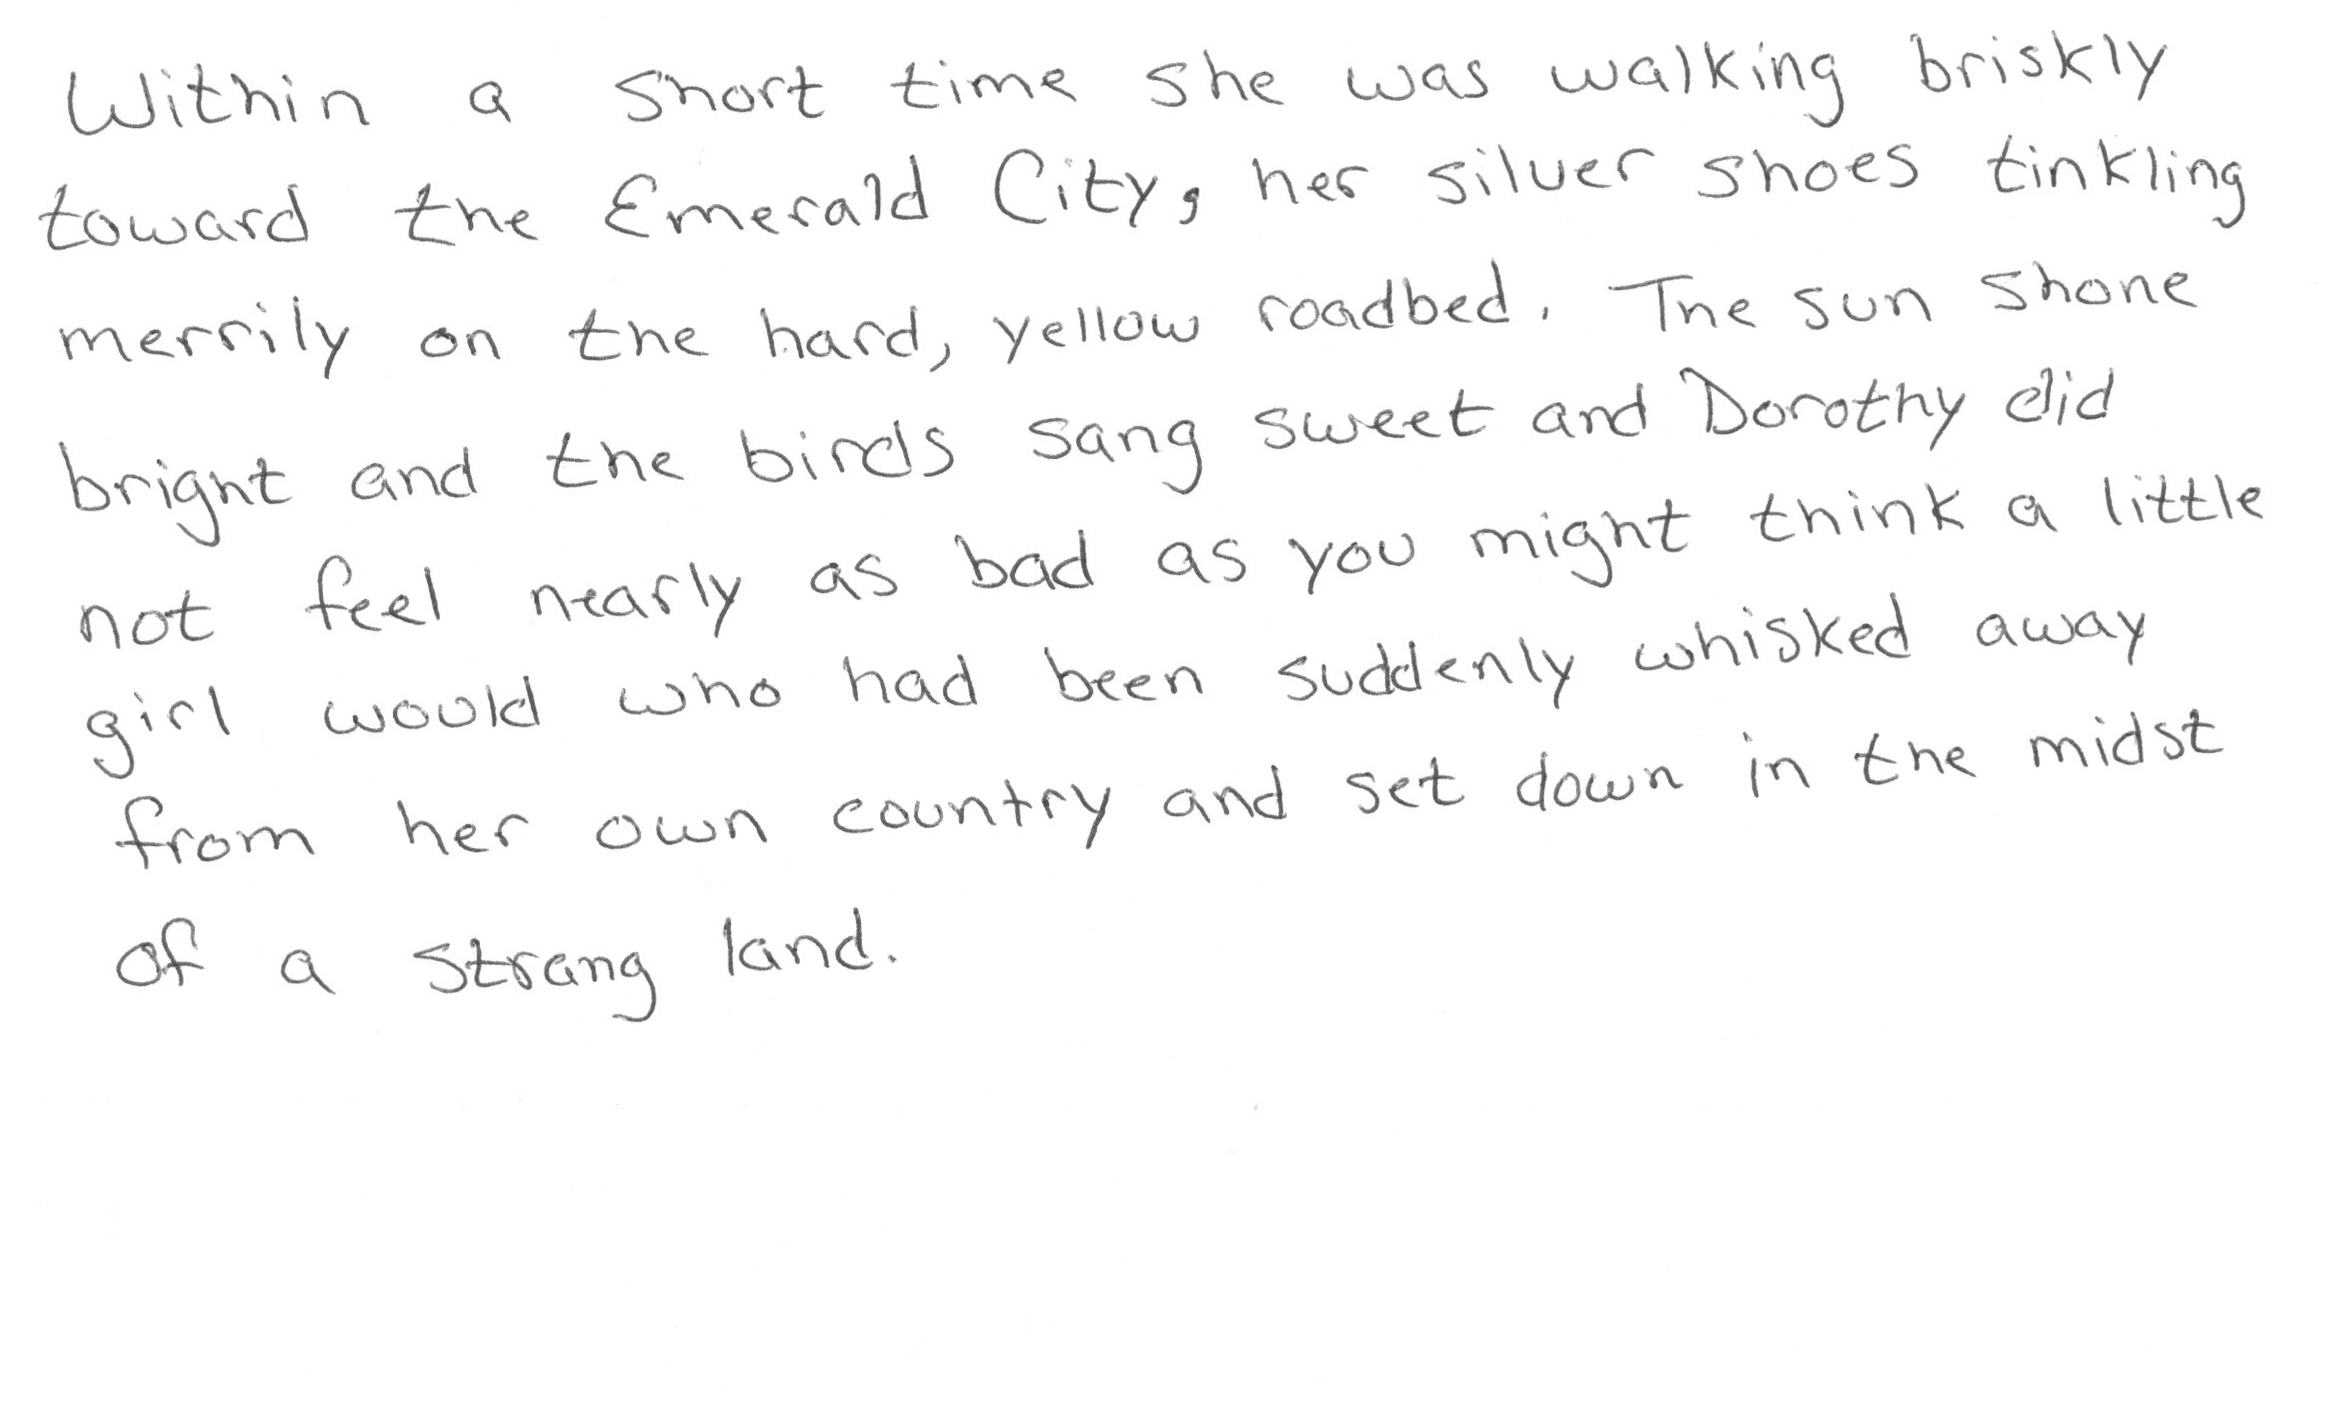 Within a short time she was walking briskly
toward the Emerald City, her silver shoes tinkling
merrily on the hard, yellow roadbed. The sun shone
bright and the birds sang sweet and Dorothy did
not feel nearly as bad as you might think a little
girl would who had been suddenly whisked away
from her own country and set down in the midst
of a strang land.